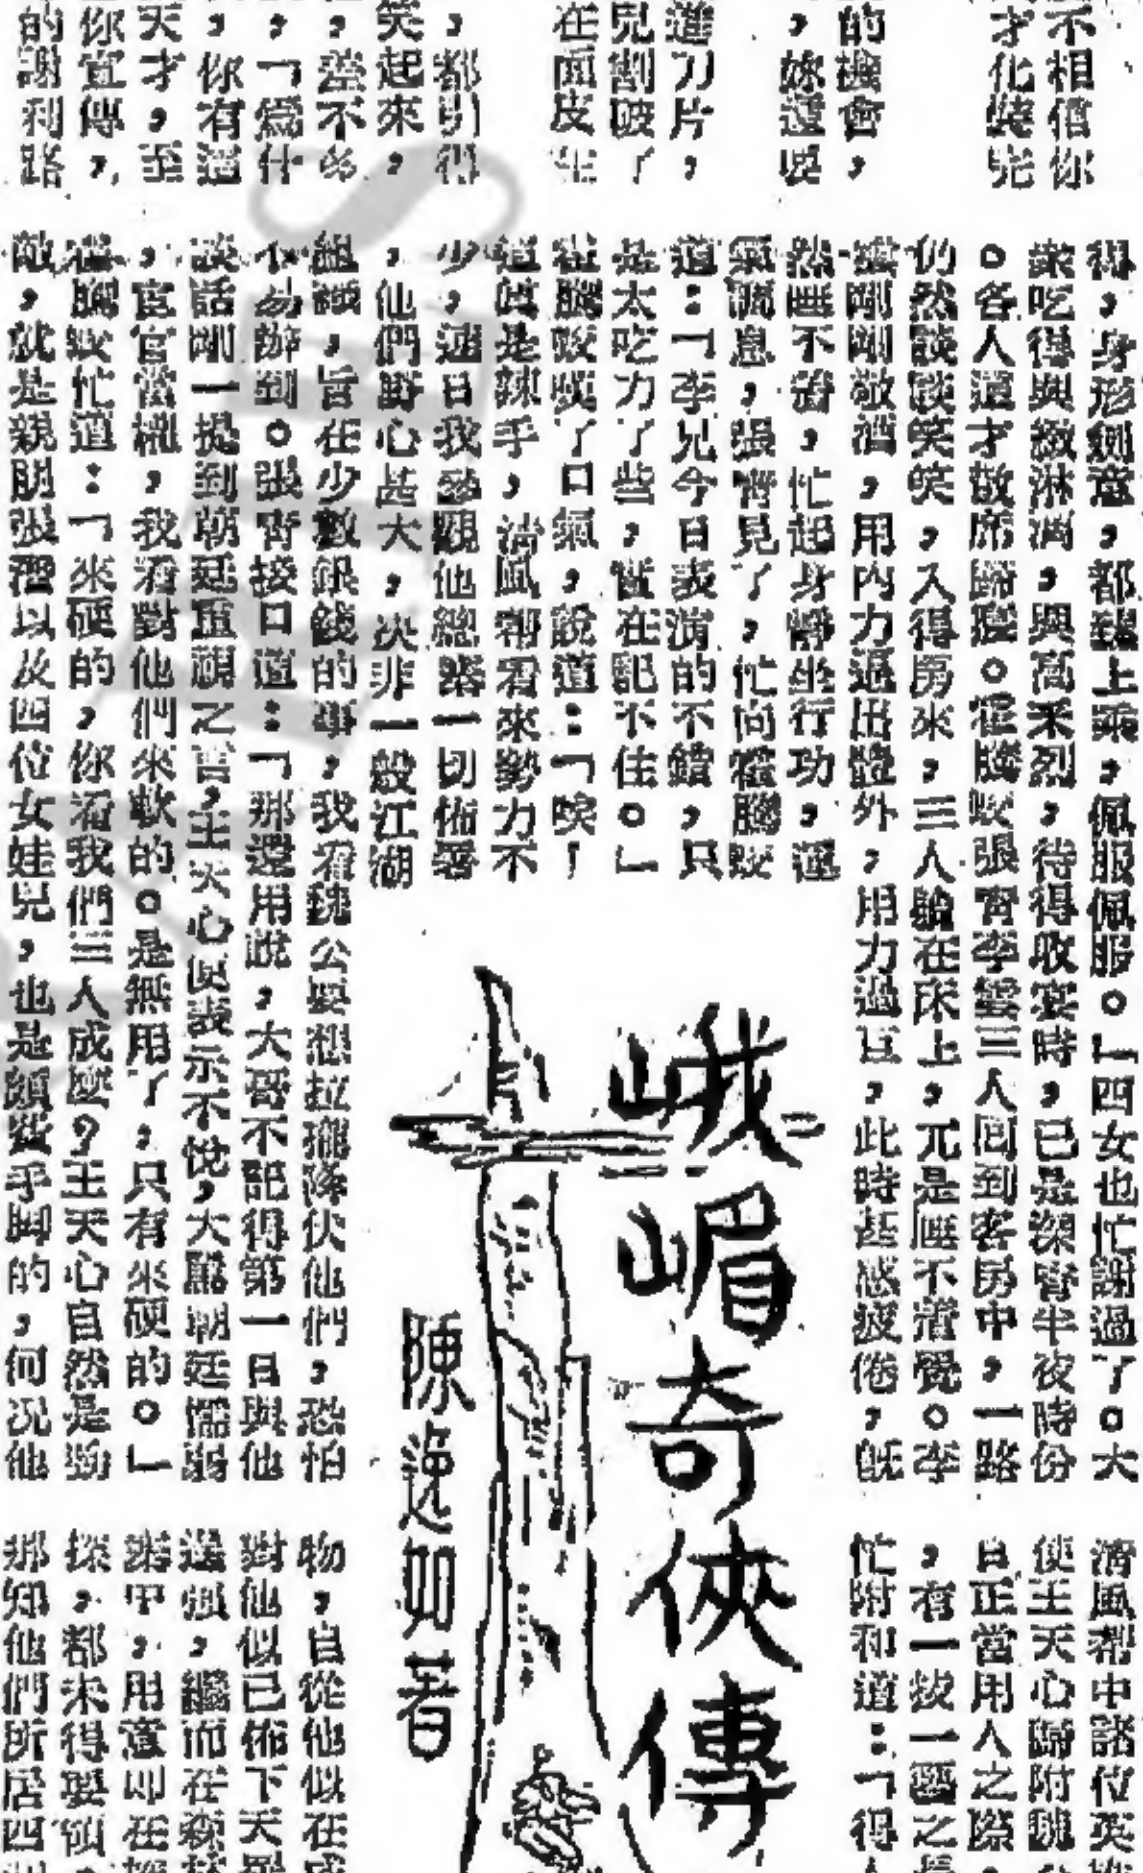 不相信你
才化裝完
的機會，
，妳還要
進刀片，
兒割破了
在面皮上
，都引得
笑起來，
，差不多
，「為什
，你有這
天才，至
你宣傳，
的謝利路
得，身形劍意，都臻上乘，佩服佩服。」四女也忙謝過了。大
家吃得興緻淋漓，興高釆烈，待得收宴時，已是深宵半夜時份
。各人這才散席歸寢。霍騰蛟張宵李雲三人囘到客房中，一路
仍然談談笑笑，入得房來，三人躺在床上，兀是睡不着覺。李
雲剛剛敬酒，用內力逼出體外，用力過巨，此時甚感疲倦，旣
然睡不着，忙起身靜坐行功，運
氣調息，張宵見了，忙向霍騰蛟
道：「李兄今日表演的不錯，只
是太吃力了些，實在記不住。」
霍騰蛟嘆了口氣，說道：「唉！
這眞是辣手，淸風帮看來勢力不
少，連日我參觀他總寨一切佈署
，他們野心甚大，决非一般江湖
組織，旨在少數銀錢的事，我看魏公要想拉攏降伏他們，恐怕
不易辦到。張宵接口道：「那還用說，大哥不記得第一日與他
談話剛一提到朝廷重視之言，王天心便表示不悅，大駡朝廷懦弱
，宦官當權，我看對他們來軟的。是無用了，只有來硬的。」
霍騰蛟忙道：「來硬的，你看我們三人成麼？王天心自然是勁
敵，就是親朋張澄以及四位女娃兒，也是頗費手脚的，何况他
峨嵋奇俠傳
陳逸如著
淸風帮中諸位英
使王天心歸附魏
日正當用人之際
，有一技一藝之長
忙附和道：「得
物，自從他似在
對他似已佈下天羅
過强，繼而在森林
棄甲，用意即在
探，都未得要領，
那知他們所居四